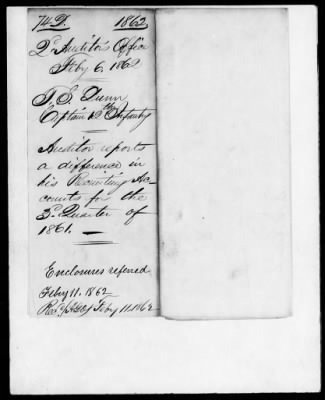 74 D. 1862
2d Auditor's Office
Feby 6, 1862
T. S. Dunn
Captain 12th Infantry
Auditor reports
a difference in
his Recruiting Ac-
counts for the
3d Quarter of
1861. —
Enclosures referred
Feby 11. 1862
Recd Feby 11. 1862